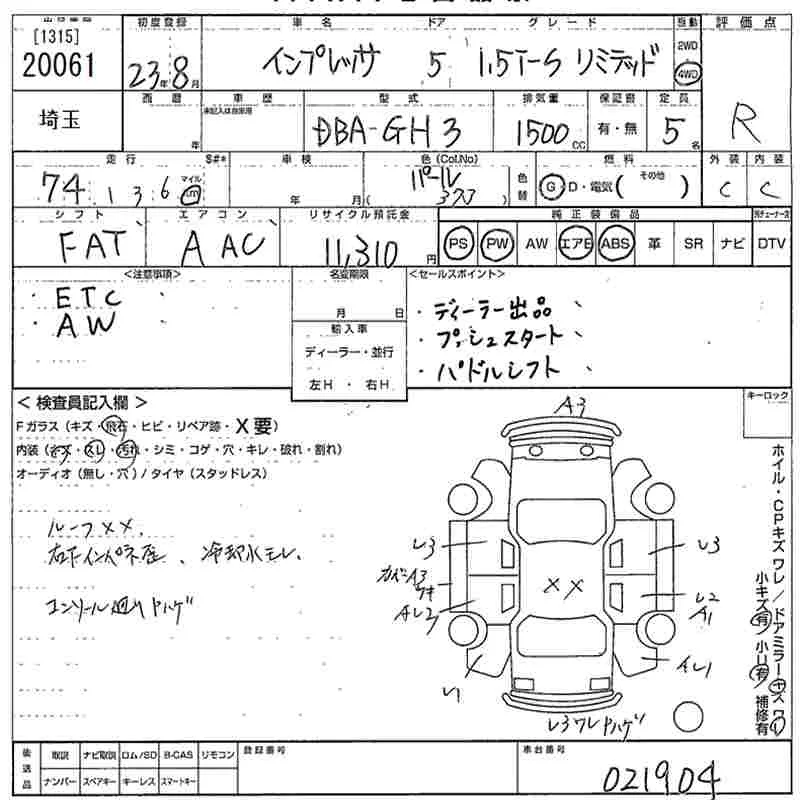 出品番号 初度登録 車名 ドア グレード 駆動 評価点
[1315]
20061 23年8月 インプレッサ 5 1.5i-S リミテッド 2WD 4WD
西暦 車歴 型式 排気量 保証書 定員
埼玉 年 未記入は自家用 DBA-GH3 1500cc 有・無 5名 R
走行 S#* 車検 色(Col.No) 燃料 外装 内装
74136 マイル km 年 月 パール (373) 色替 G・D・電気( その他 ) C C
シフト エアコン リサイクル預託金 純正装備品
FAT AAC 11,310円 PS PW AW エアB ABS 革 SR ナビ DTV
<注意事項> 名変期限 <セールスポイント>
・ETC 月 日 ・ディーラー出品、
・AW 輸入車 ・プッシュスタート、
ディーラー・並行 ・パドルシフト、
左H ・ 右H
< 検査員記入欄 > キーロック
Fガラス(キズ・飛石・ヒビ・リペア跡・X要) A3
内装(キズ・スレ・汚れ・シミ・コゲ・穴・キレ・破れ・割れ)
オーディオ(無し・穴)/タイヤ(スタッドレス)
ルーフXX、
右下インパネ座、冷却水モレ、
コンソール廻りハゲ
レ3 レ3
カバーA3
ワキ XX レ2
Aレ2 A1
レ1 Aレ1
レ3ワレハゲ
ホイル・CPキズワレ/ドアミラーキズワレ
小キズ有 小U有 補修有
後送品 取説 ナビ取説 ロム/SD B-CAS リモコン 登録番号 車台番号
ナンバー スペアキー キーレス スマートキー 021904